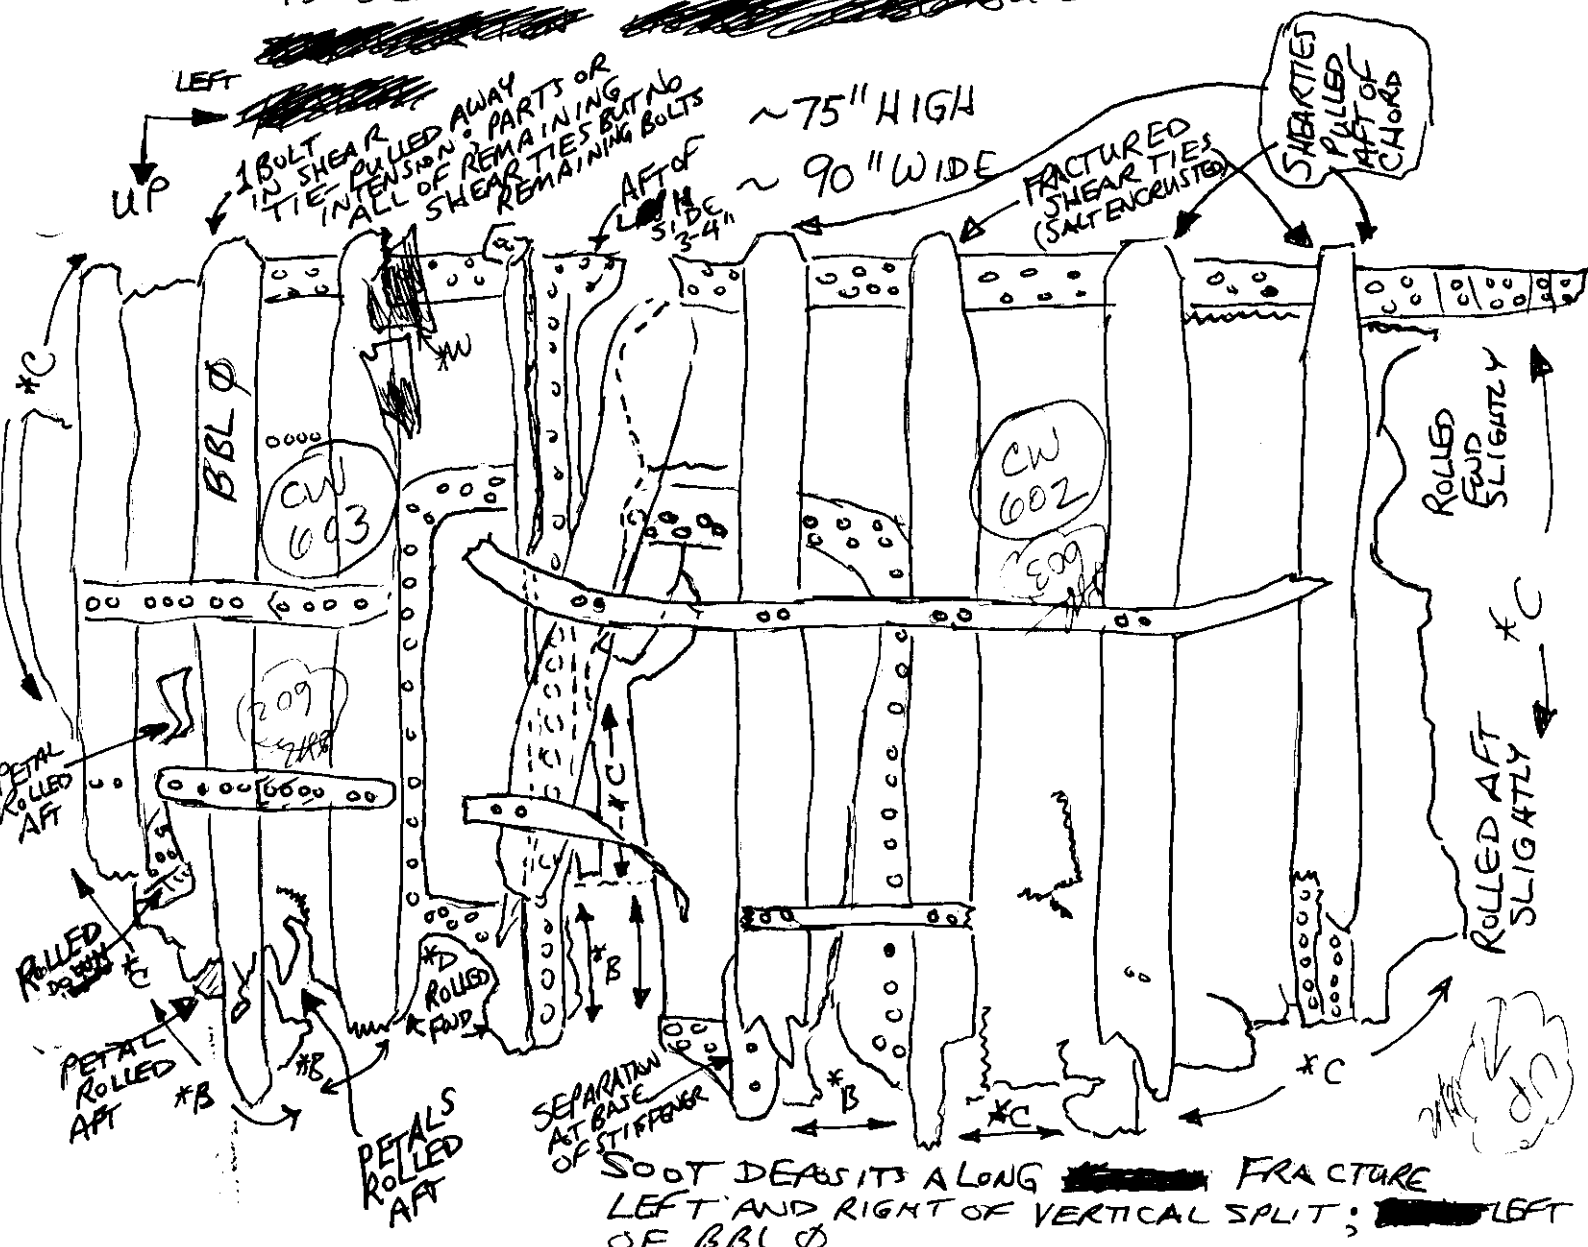 LEFT
UP
1 BOLT
IN SHEAR
TIE - PULLED AWAY
IN TENSION; PARTS OR
ALL OF REMAINING
SHEAR TIES BUT NO
REMAINING BOLTS
AFT OF
SIDE
3-4"
~75" HIGH
~ 90" WIDE
FRACTURED
SHEAR TIES
(SALT ENCRUSTED)
SHEAR TIES
PULLED
AFT OF
CHORD
*C
BBL Ø
*W
CW
603
CW
602
603
209
ROLLED
FWD
SLIGHTLY
*C
ROLLED AFT
SLIGHTLY
PETAL
ROLLED
AFT
ROLLED
DOWN
*C
PETAL
ROLLED
AFT
*B
*B
PETALS
ROLLED
AFT
*D
ROLLED
FWD
*C
*B
SEPARATION
AT BASE
OF STIFFENER
*B
*C
*C
UP
SOOT DEPOSITS ALONG FRACTURE
LEFT AND RIGHT OF VERTICAL SPLIT; LEFT
OF BBL Ø